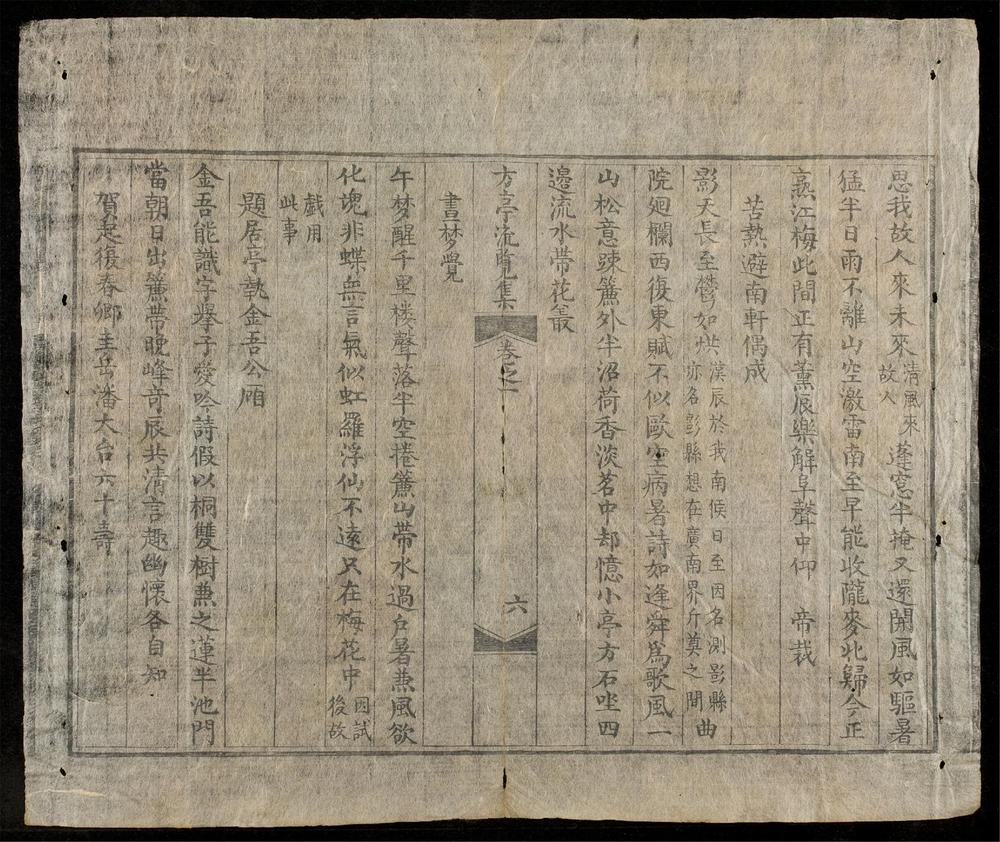 思我故人來未來清風來故人蓬窓半掩又還開風如驅暑
猛半日雨不離山空激雷南至早能收隴麥北歸今正
熟江梅此間正有薰辰樂解阜聲中仰帝哉
苦熱避南軒偶成
影天長至鬱如烘漢辰於我南候日至因名測影縣亦名影縣想在廣南界斤奠之間曲
院廻欄西復東賦不似歐空病暑詩如逢舜爲歌風一
山松意踈簾外半沼荷香淡茗中却憶小亭方石坐四
邊流水帶花叢
方亭流覽集 卷之一 六
晝梦覺
午梦醒千里楼聲落半空捲簾山帶水過戶暑兼風欲
化魂非蝶無言氣似虹羅浮仙不遠只在梅花中因試後故
戲用此事
題居亭執金吾公廂
金吾能識字擧子愛吟詩假以桐雙樹兼之蓮半池門
當朝日出簾帶晚峰竒辰共清言趣幽懷各自知
賀起復春鄉圭岳潘大台六十壽